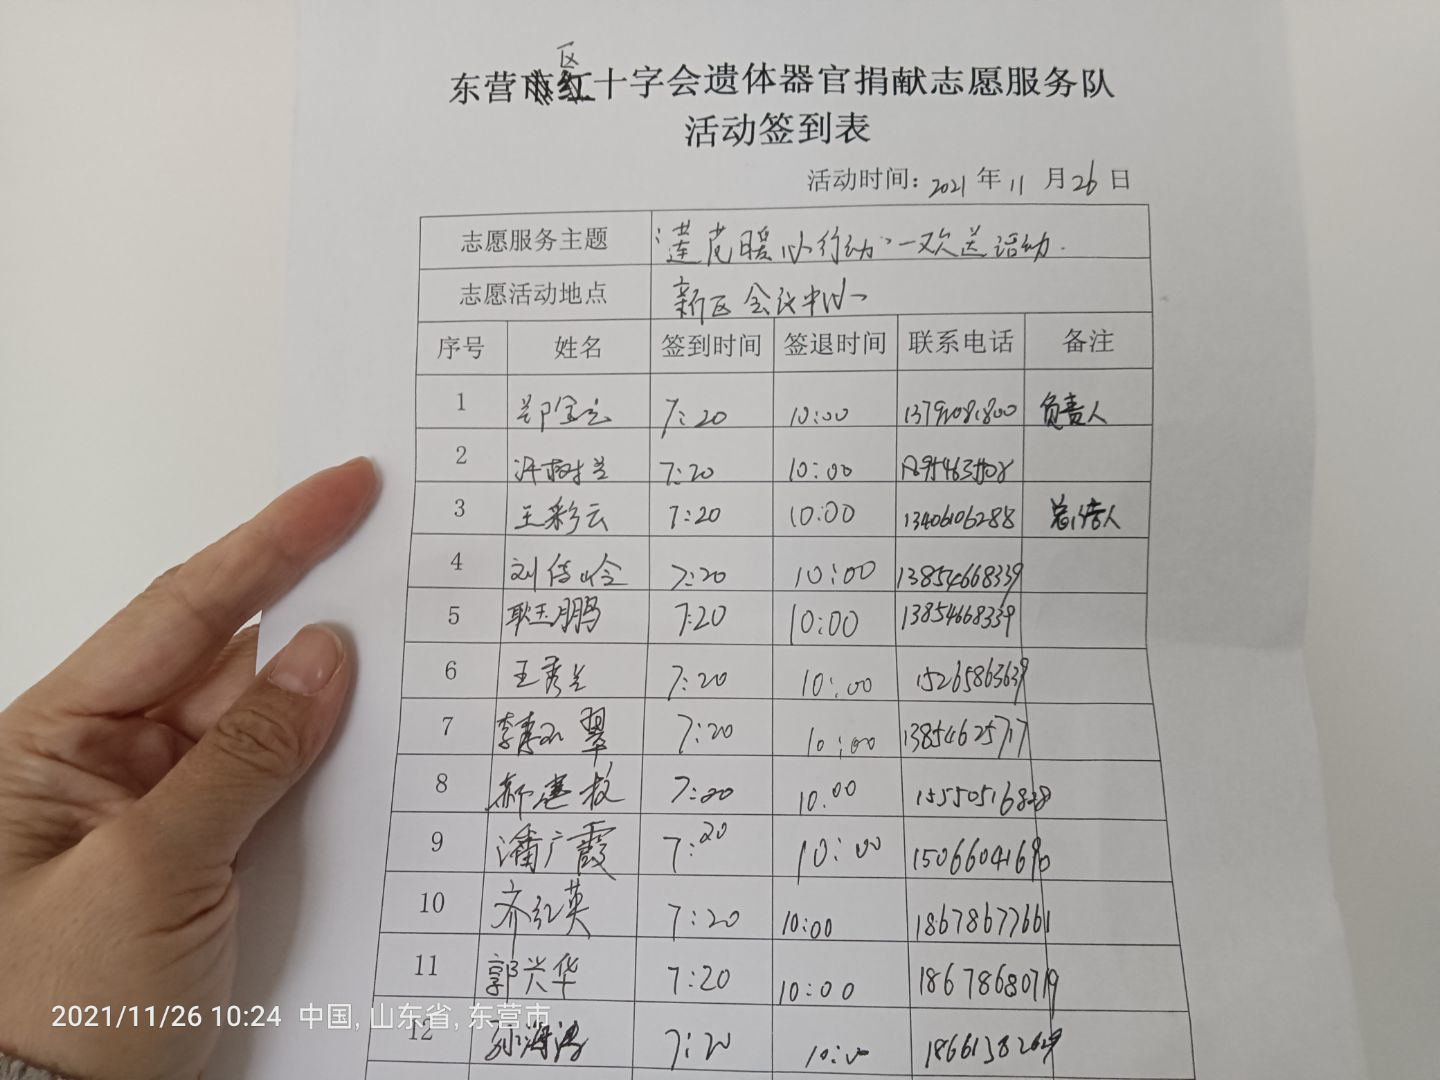 东营区红十字会遗体器官捐献志愿服务队
活动签到表
活动时间：2021年11月26日
志愿服务主题 “莲花暖心行动”—欢送活动.
志愿活动地点 新区会议中心
序号 姓名 签到时间 签退时间 联系电话 备注
1 郑金云 7:20 10:00 负责人
2 许树兰 7:20 10:00
3 王彩云 7:20 10:00 13406106288
4 刘传岭 7:20 10:00 13854668339
5 耿玉鹏 7:20 10:00 13854668339
6 王秀兰 7:20 10:00 15265863639
7 7:20 10:00 13854625717
8 7:20 10:00 15550516828
9 潘广霞 7:20 10:00 15066041690
10 齐红英 7:20 10:00 18678677661
11 郭兴华 7:20 10:00 18678680719
12 孙海涛 7:20 10:00
2021/11/26 10:24 中国, 山东省, 东营市